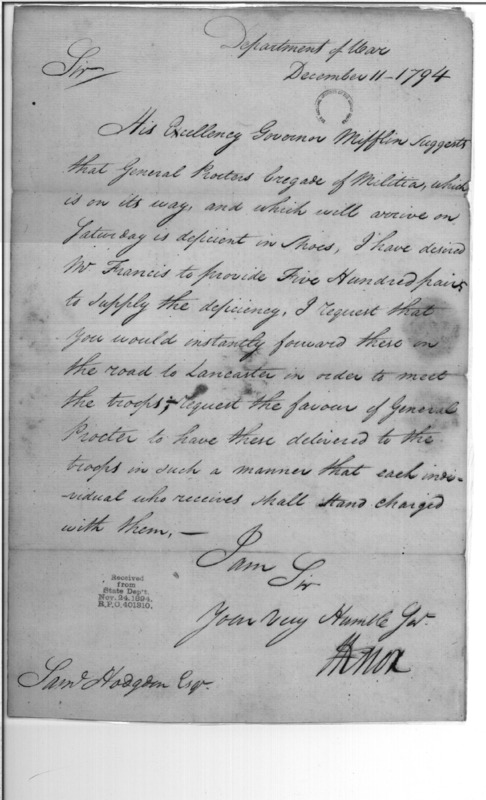 Department of War
December 11 - 1794
Sir
His Excellency Govornor Mifflin suggests
that General Proctors bregade of Militia, which
is on its way, and which will arrive on
Saturday is deficient in Shoes, I have desired
Mr Francis to provide Five Hundred pairs
to supply the deficiency, I request that
you would instantly forward these on
the road to Lancaster in order to meet
the troops, & request the favour of General
Procter to have these delivered to the
troops in such a manner that each indi-
-vidual who receives shall stand charged
with them. —
I am
Sir
Your Very Humble Sert.
HKnox
Received
from
State Dep't.
Nov. 24, 1894.
R.P.O. 401210.
Saml Hodgdon Esqr.